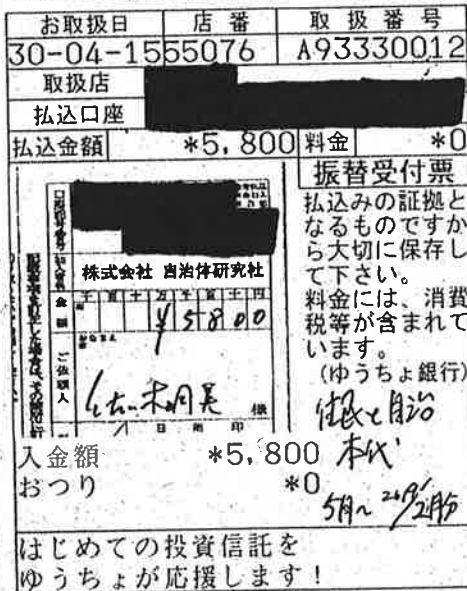 お取扱日 店番 取扱番号
30-04-15 55076 A93330012
取扱店
払込口座
払込金額 *5,800 料金 *0
振替受付票
払込みの証拠と
なるものですか
ら大切に保存し
て下さい。
料金には、消費
税等が含まれて
います。
(ゆうちょ銀行)
株式会社 自治体研究社
金額
千 百 十 万 千 百 十 円
¥5800
ご依頼人
様
日附印
住民と自治
本代
5月〜
入金額 *5,800
おつり *0
はじめての投資信託を
ゆうちょが応援します!